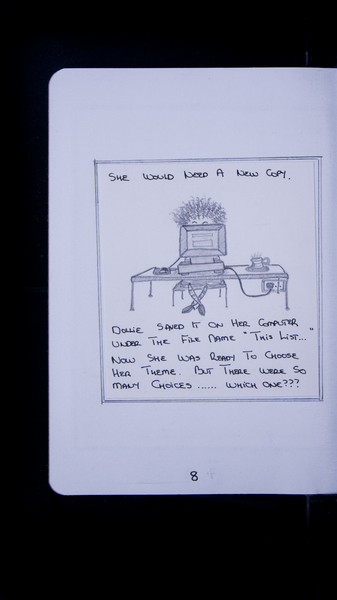 SHE WOULD NEED A NEW COPY.
DOLLIE SAVED IT ON HER COMPUTER
UNDER THE FILE NAME "THIS LIST..."
NOW SHE WAS READY TO CHOOSE
HER THEME. BUT THERE WERE SO
MANY CHOICES ...... WHICH ONE???
8